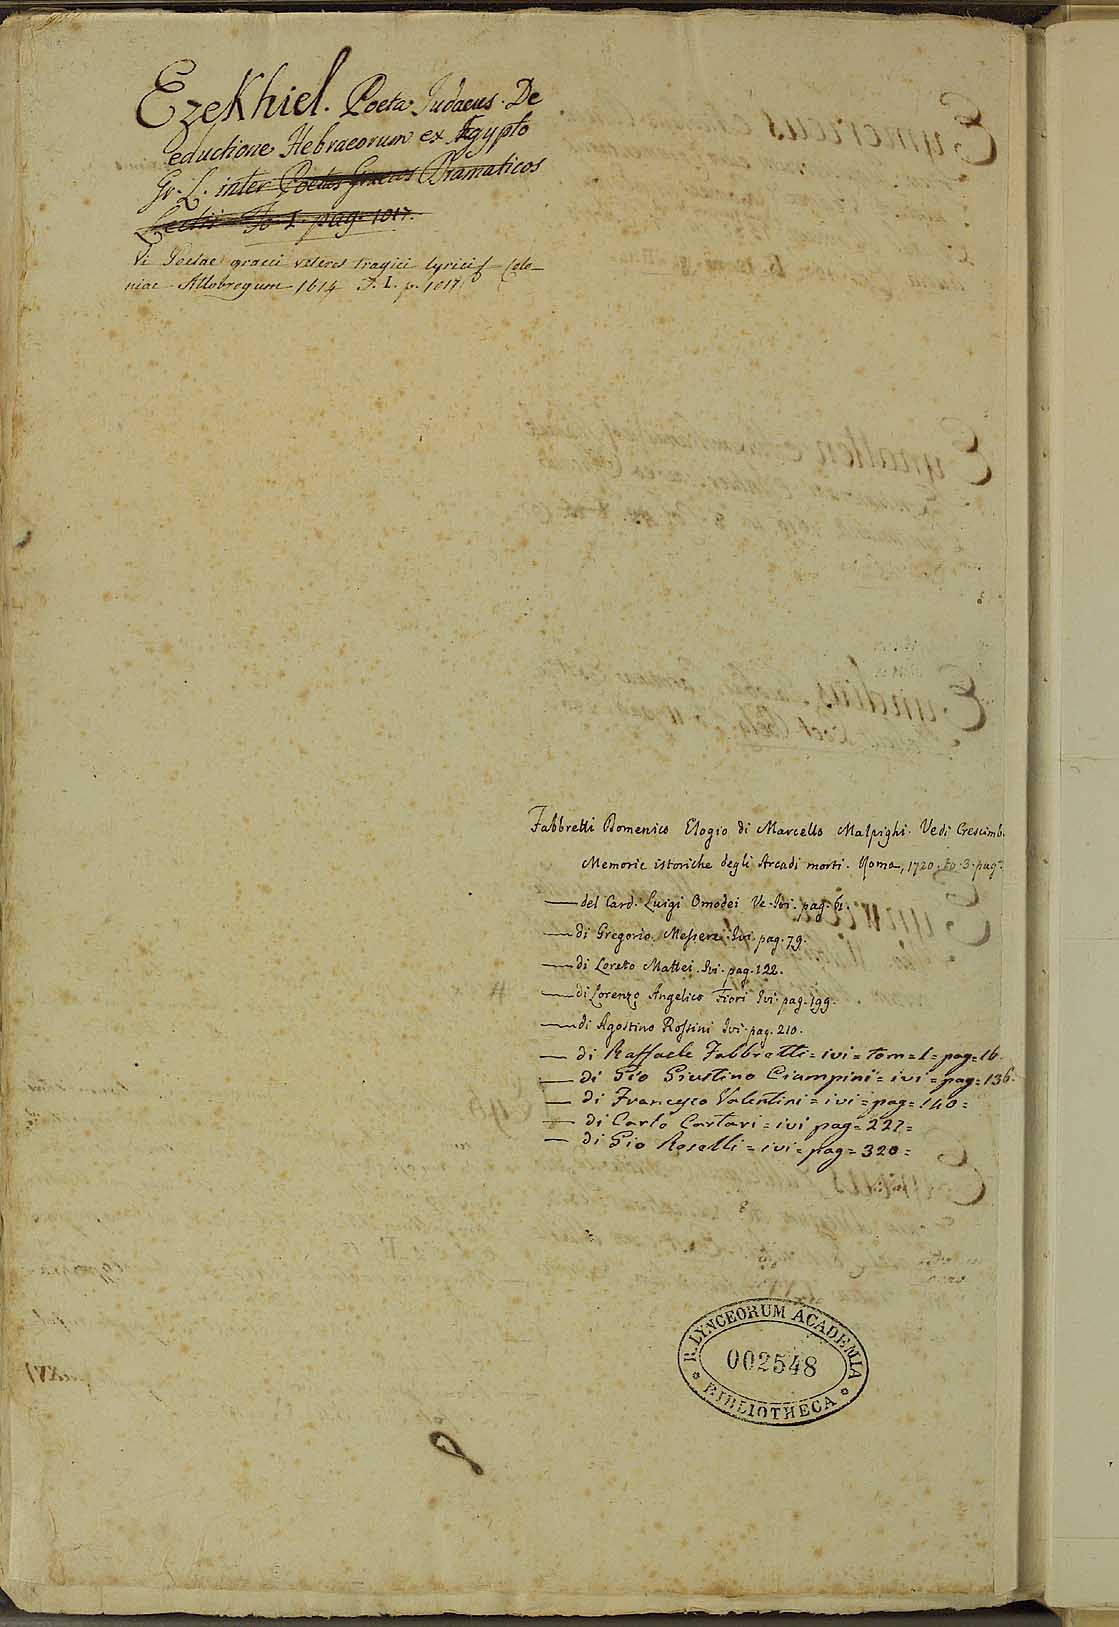 Ezekhiel. Poeta Judaeus. De
eductione Hebraeorum ex Egypto
Gr. L. inter Poetas Graecos Dramaticos
To. I. pag. 1017.
Vi Poetae graeci veteres tragici lyrici Colo-
niae Allobrogum 1614 T. I. p. 1017
Fabbretti Domenico Elogio di Marcello Malpighi. Vedi Crescimb.
Memorie istoriche degli Arcadi morti. Roma, 1720. to. 3. pag.
— del Card. Luigi Omodei Ve. Ivi. pag. 61.
— di Gregorio Messere Ivi. pag. 79.
— di Loreto Mattei. Ivi. pag. 122.
— di Lorenzo Angelico Fiori Ivi. pag. 199.
— di Agostino Rossini Ivi. pag. 210.
— di Raffaele Fabbretti = ivi = tom = 1 = pag = 16.
— di Gio Giustino Ciampini = ivi = pag = 136.
— di Francesco Valentini = ivi = pag = 140 =
— di Carlo Cartari = ivi pag = 227 =
— di Gio Roselli = ivi = pag = 320 =
R. LYNCEORUM ACADEMIA
002548
BIBLIOTHECA